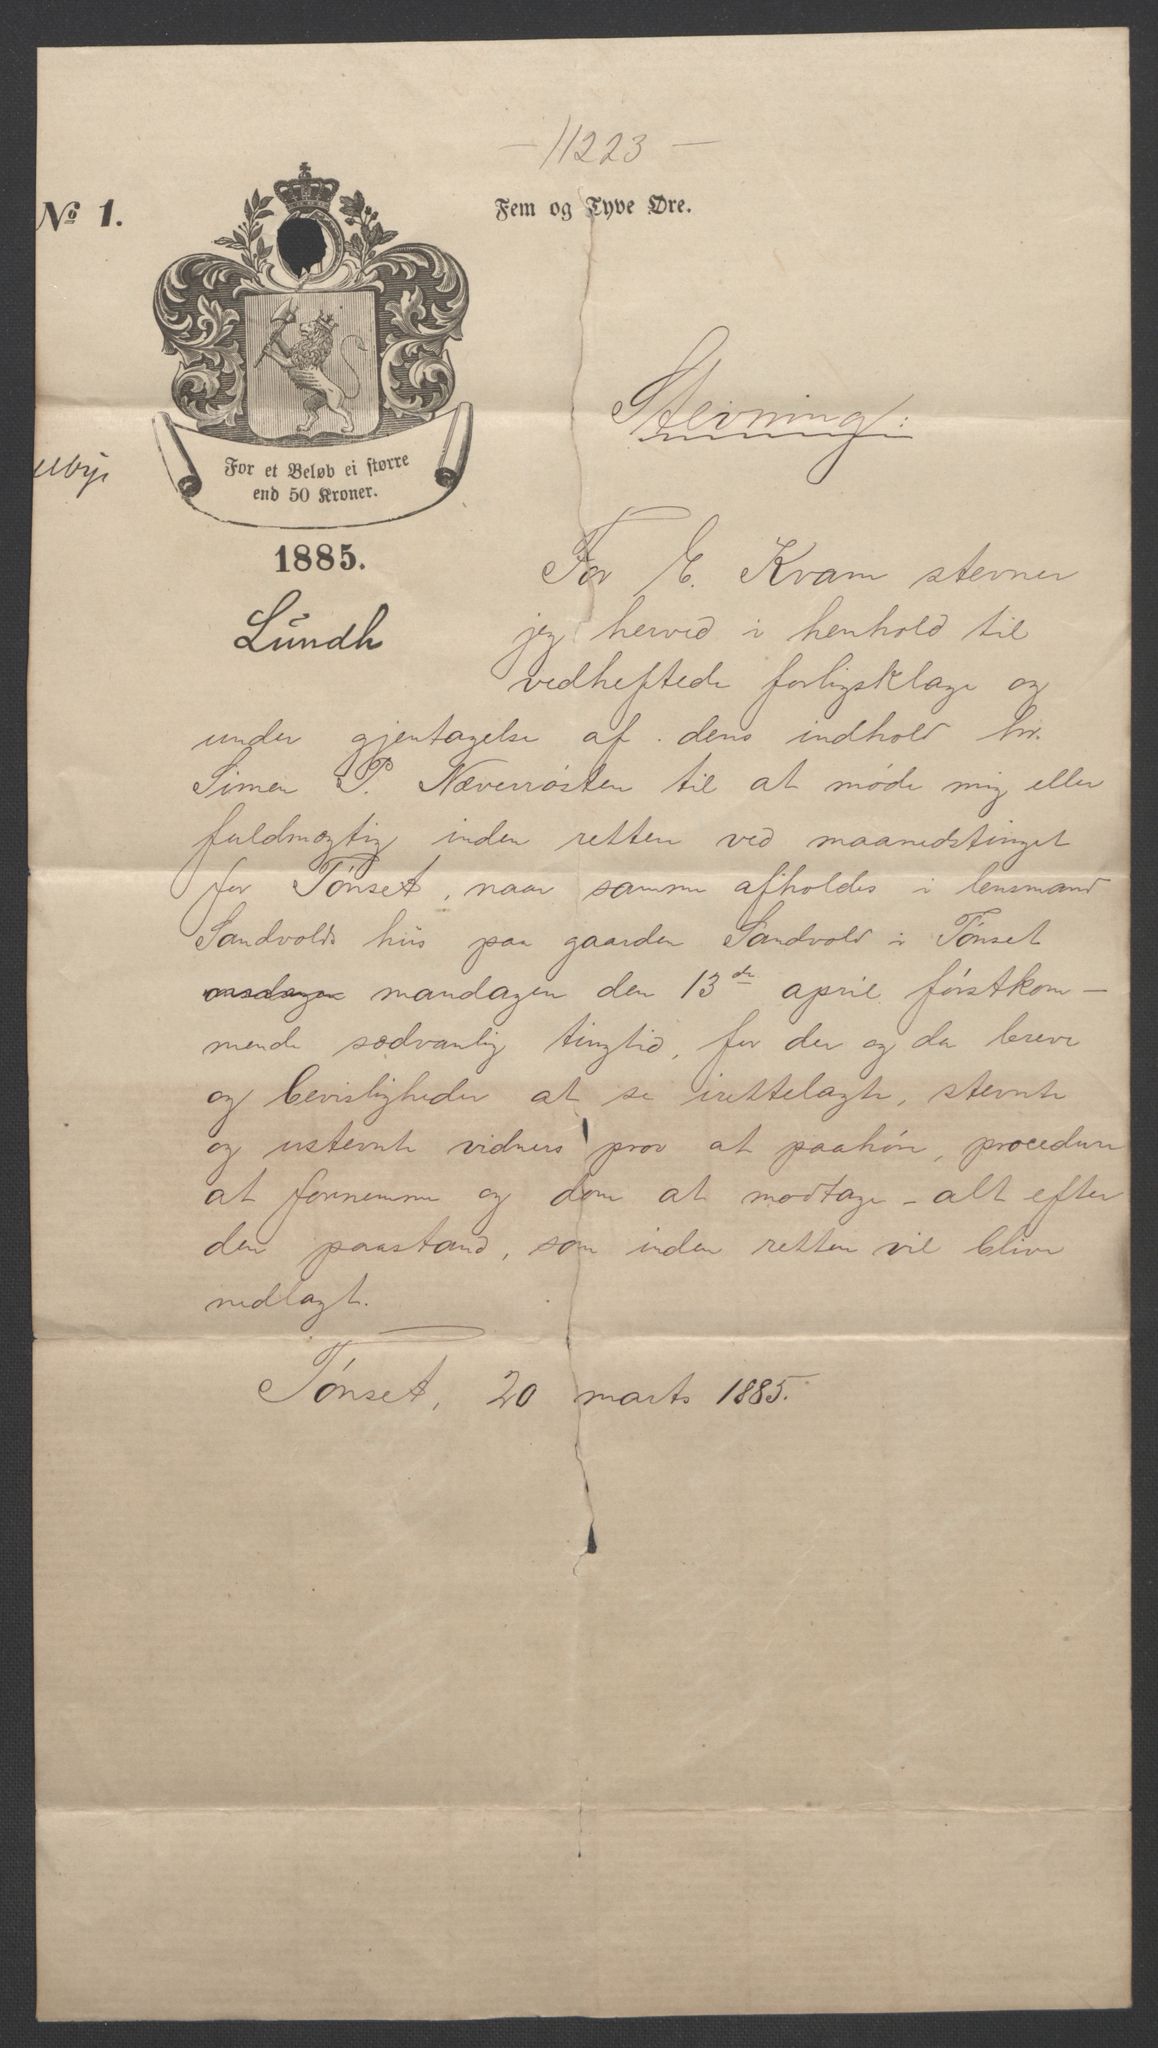 11223
No 1.
Fem og Tyve Øre.
For et Beløb ei større
end 50 Kroner.
1885.
Lundh
Stevning:
For E. Kvam stevner
jeg herved i henhold til
vedheftede forligsklage og
under gjentagelse af dens indhold hr.
Simen P. Næverrøsten til at møde mig eller
fuldmægtig inden retten ved maanedstinget
for Tønset, naar samme afholdes i lensmand
Sandvolds hus paa gaarden Sandvold i Tønset
mandagen den 13de april førstkom-
mende sedvanlig tingtid, for der og da breve
og bevisligheder at se irettelagte, stevnte
og ustevnte vidners prov at paahøre, procedure
at fornemme og dom at modtage - alt efter
den paastand, som inden retten vil blive
nedlagt.
Tønset, 20 marts 1885.